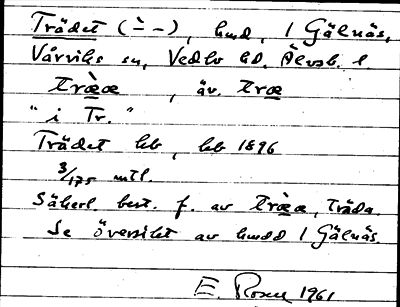 Trädet (` – –), hmd, 1 Gälnäs,
Vårviks sn, Vedbo hd. Älvsb. l.
træ̀æ, äv. træ
"i Tr."
Trädet hb, hb 1896
3/175 mtl.
Säkerl. best. f. av træ̀æ, träda.
Se översikt av hmdd 1 Gälnäs.
E. Rosell 1961